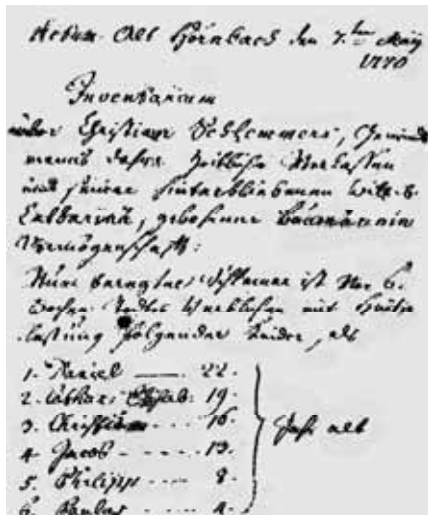 Actum Alt Hornbach den 7.ten Maij
1770
Inventarium
über Christian Schlemmers, Gemeinds
manns dahier Zeitliche Verlassen
und seiner hinterbliebenen Wittib
Catharina, gebohrner
Vermögenschafft:
ist vor 6.
Wochen Todtes Verblichen mit Hinter
lassung folgender Kinder, als
1. Daniel — 22.
2. 19.
3. Christian - - - 16.
4. Jacob - - - - 13.
5. Philipp - - - - 8.
6. - - - 4.
Jahr alt